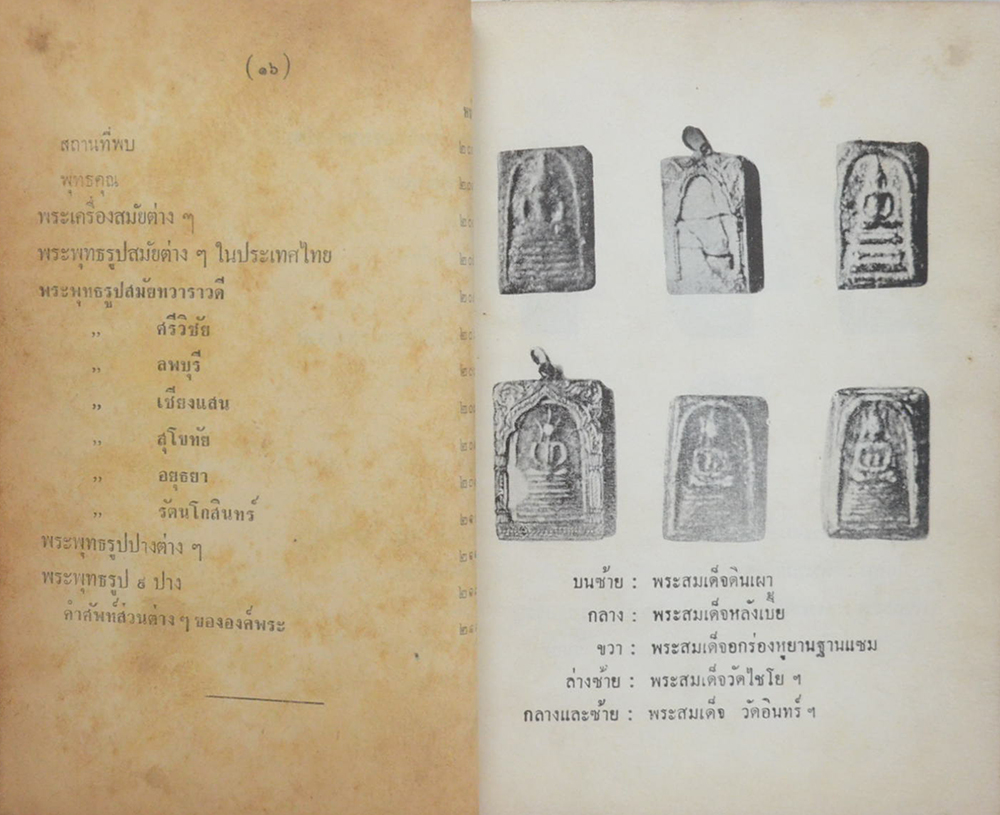 (๑๖)
สถานที่พบ
พุทธคุณ
พระเครื่องสมัยต่าง ๆ
พระพุทธรูปสมัยต่าง ๆ ในประเทศไทย
พระพุทธรูปสมัยทวาราวดี
,, ศรีวิชัย
,, ลพบุรี
,, เชียงแสน
,, สุโขทัย
,, อยุธยา
,, รัตนโกสินทร์
พระพุทธรูปปางต่าง ๆ
พระพุทธรูป ๙ ปาง
คำศัพท์ส่วนต่าง ๆ ขององค์พระ
บนซ้าย : พระสมเด็จดินเผา
กลาง : พระสมเด็จหลังเบี้ย
ขวา : พระสมเด็จอกร่องหูยานฐานแซม
ล่างซ้าย : พระสมเด็จวัดไชโย ฯ
กลางและซ้าย : พระสมเด็จ วัดอินทร์ ฯ